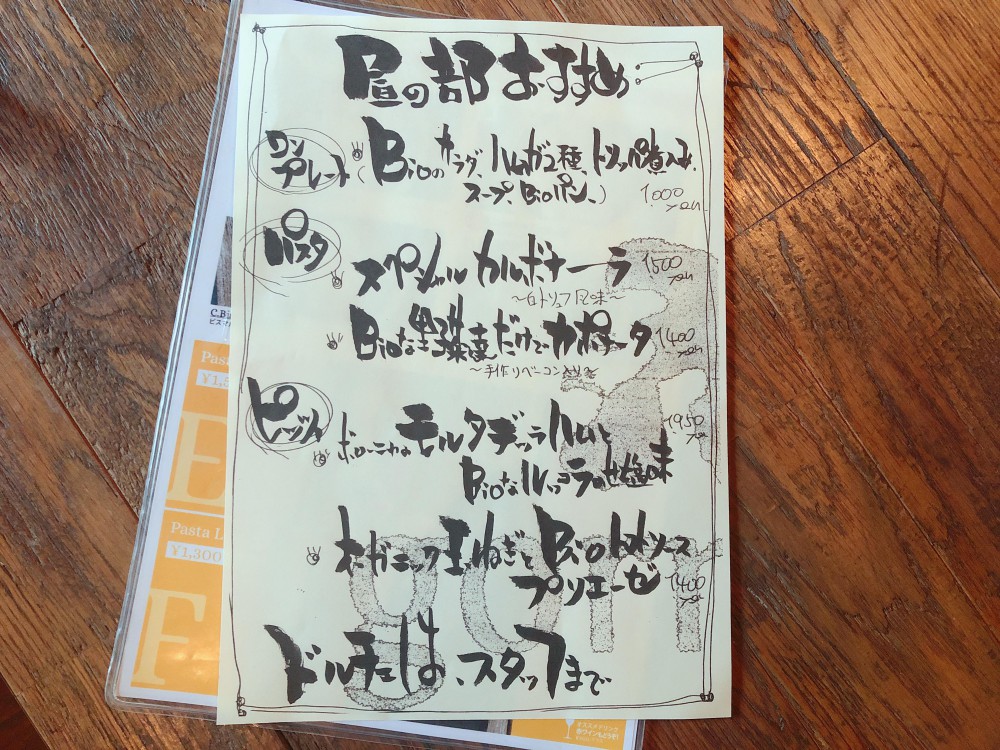 昼の部おすすめ
ワン
プレート
(Bioのサラダ、ハムガ2種、トリッパ煮込み、
スープ、Bioパン、)
1,000
yen
パスタ
スペシャルカルボナーラ
1500
yen
～白トリュフ風味～
Bioな野菜だけでカポナータ
1400
yen
～手作りベーコン入り～
ピッツァ
ボローニャのモルタデッラハムと
1950
yen
Bioなルッコラの塩味
オーガニック玉ねぎとBioトマトソース
プリエーゼ
1400
yen
ドルチェは、スタッフまで
C.Bi
Pasta
¥1,5
E
Pasta L
¥1,300
F